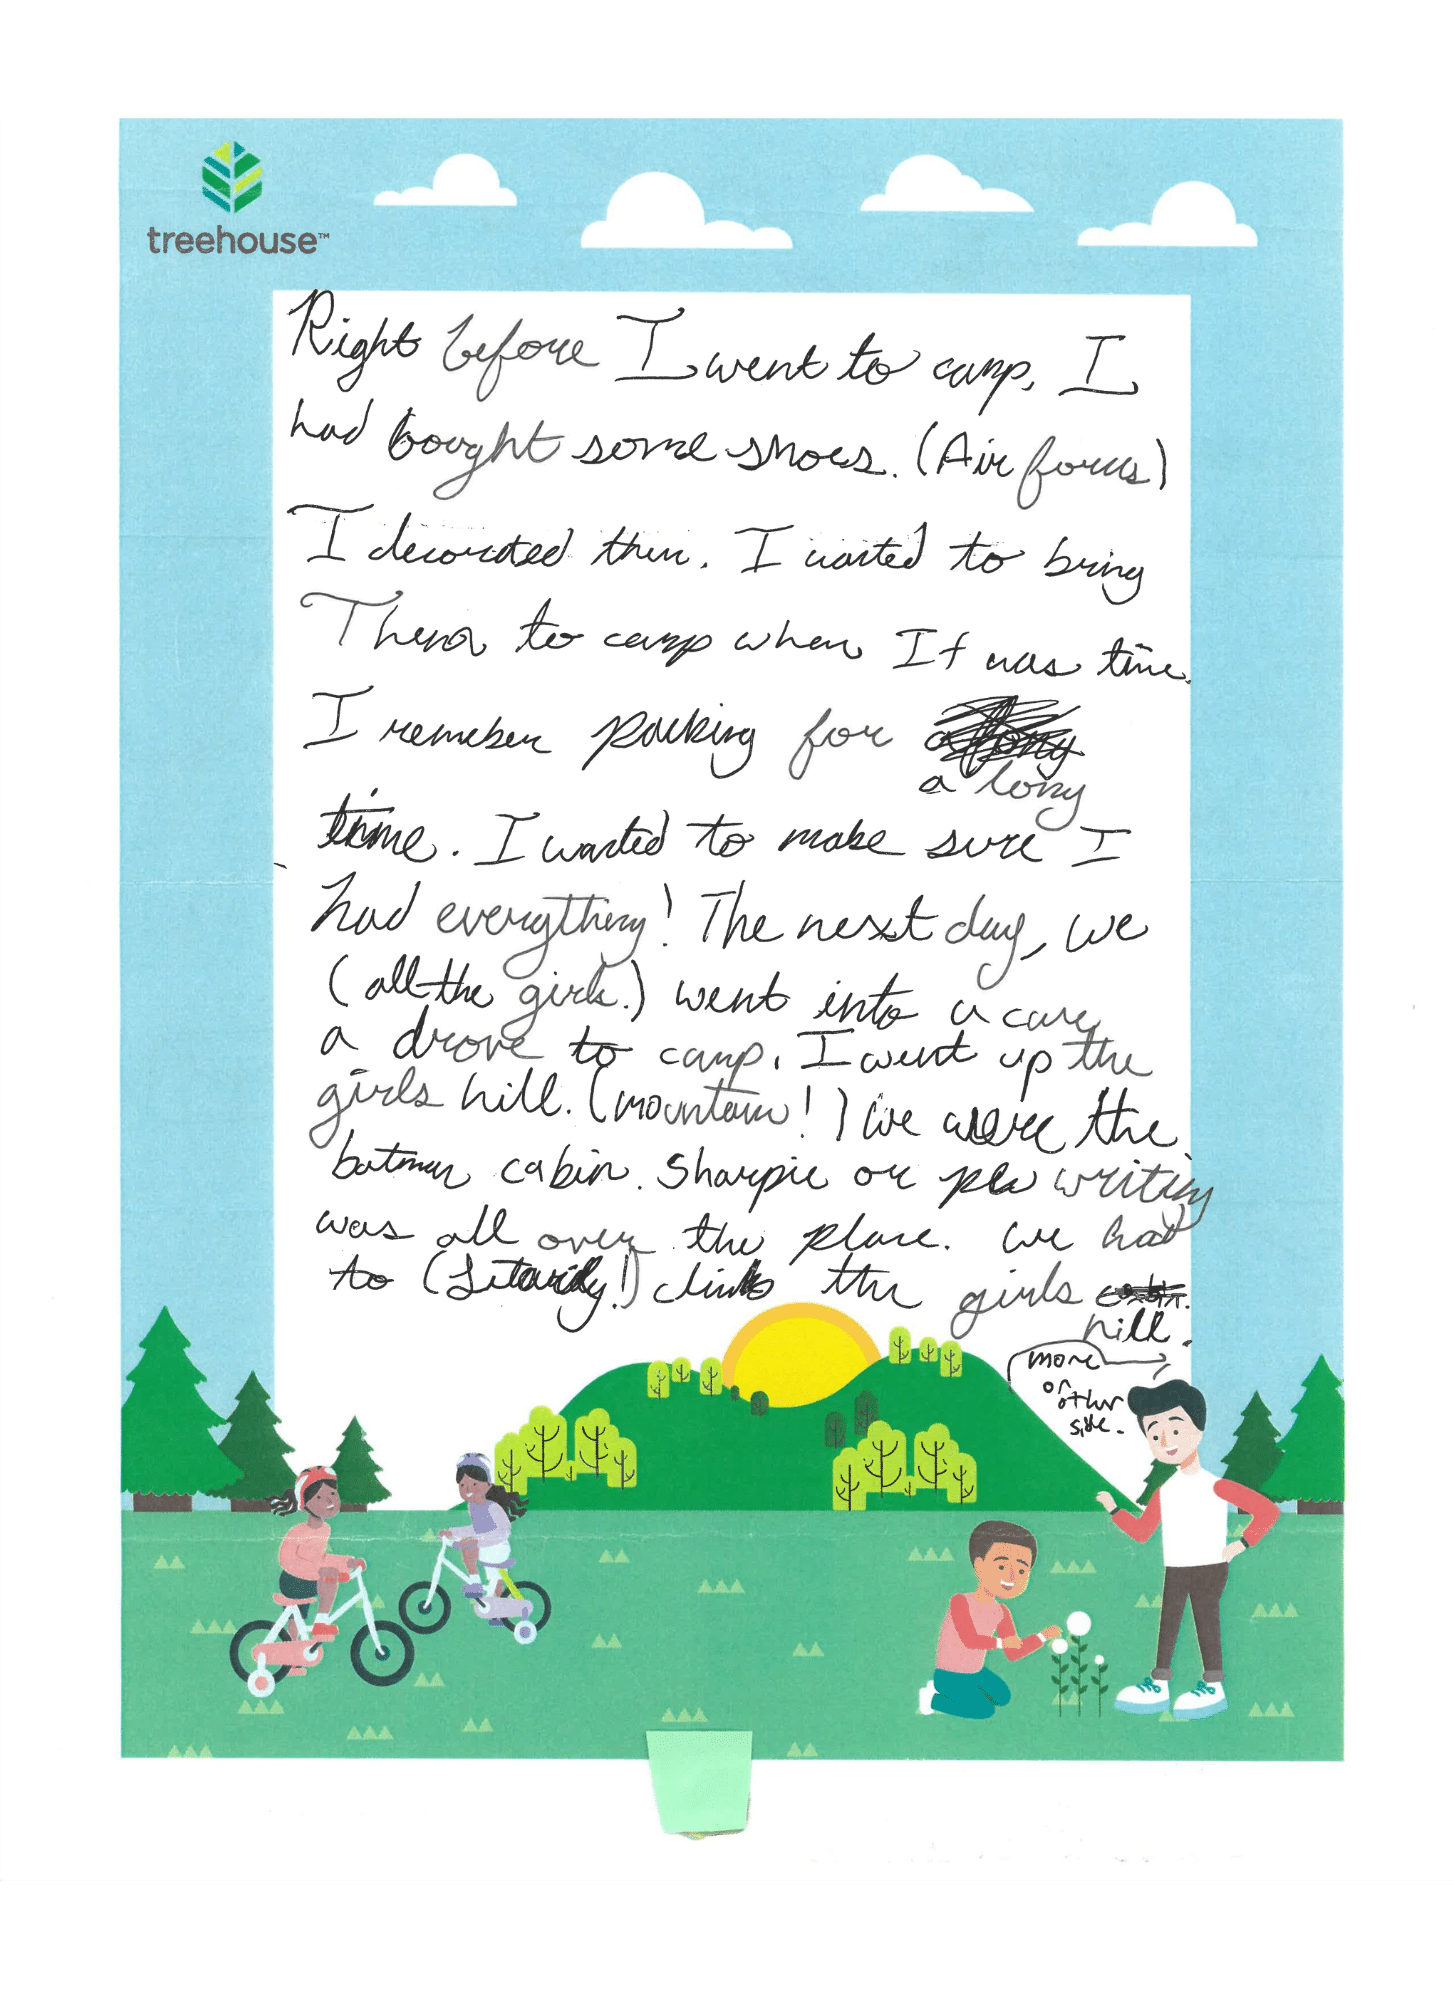 treehouse™
Right before I went to camp, I
had bought some shoes. (Air forces)
I decorated them. I wanted to bring
Them to camp when It was time.
I remeber packing for
a long
time. I wanted to make sure I
had everything! The next day, we
(all the girls.) went into a care
a drove to camp. I went up the
girls hill. (mountain!) We were the
batman cabin. Sharpie or pen writing
was all over the place. We had
to (Literaly!) climb the girls
hill.
more
on
other
side.